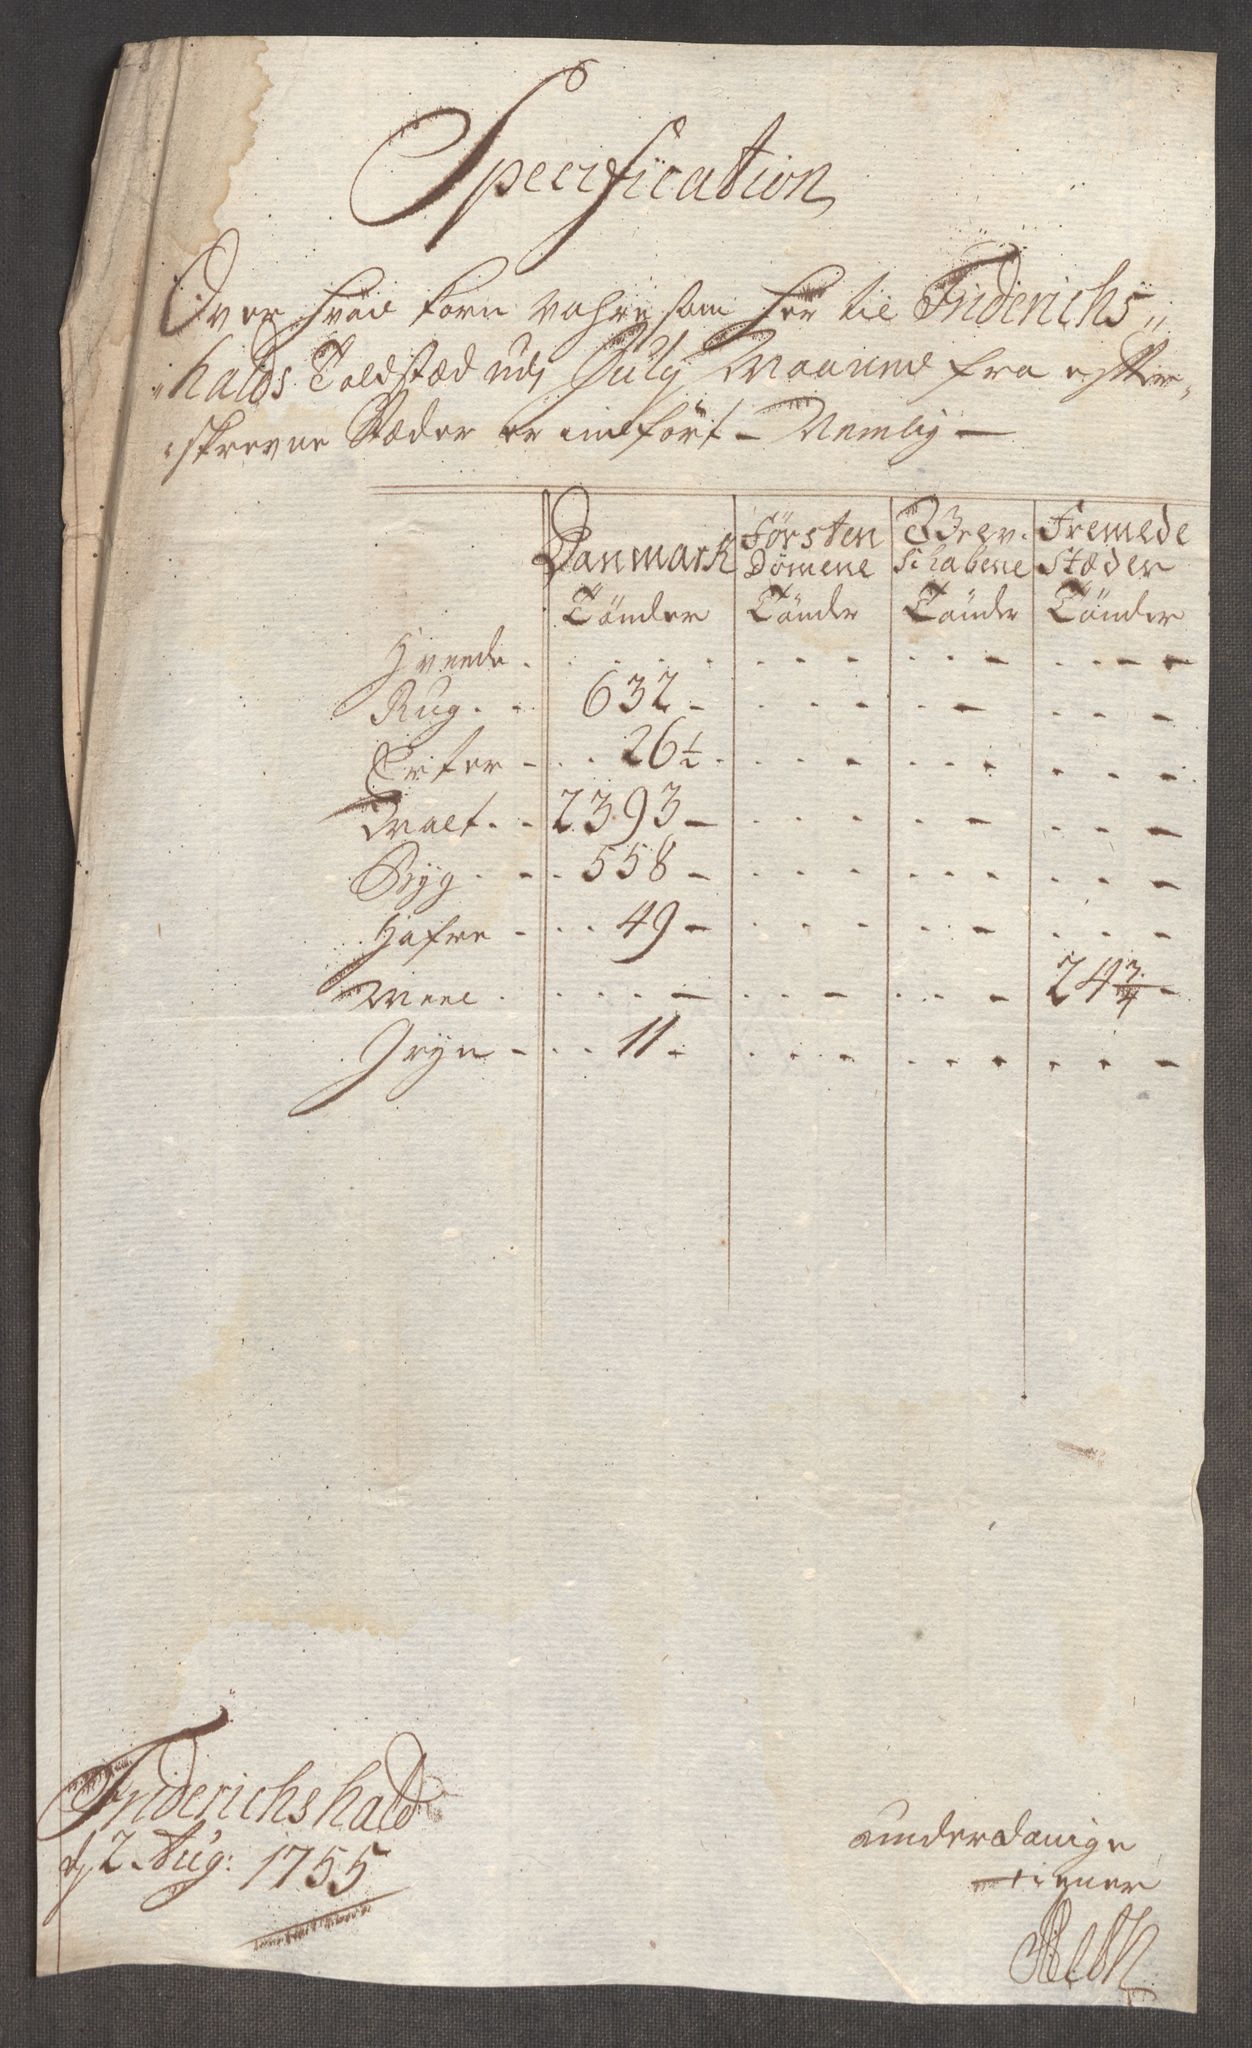 Specification
Over hvad Korn vahre som her til Friderichs„
„halds Toldsted udj July Maaned fra efter„
„skrevne Stæder er indført – Nemlig –
Danmark Førsten Grev. Fremede
Dømene schabene Stæder
Tönder Tönder Tönder Tönder
Hveede . . . . . . - . . - - . . - -
Rug . . 632 - . . . - . - . . - -
Erter - . . 26½ . . . - . . . . . .
Malt . . 2393 - . . . . - - . . -
Byg . - . . 558 - . . . . . - . . . -
Hafre - . . 49 - . . . . . - . . . -
Meel . . . . . - . . - . . - 24¾ -
Gryn - . . 11 - . . . - . . - . . . -
Friderichshald
d 2. Aug: 1755
underdanige
tiener